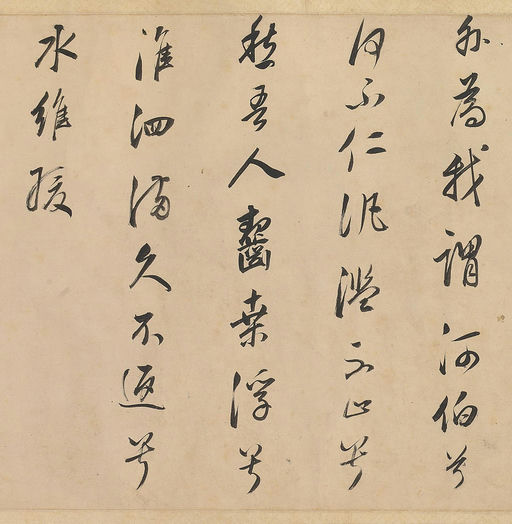 外為我謂河伯兮
何不仁汎濫不止兮
愁吾人齧桑浮兮
淮泗滿久不返兮
水維緩